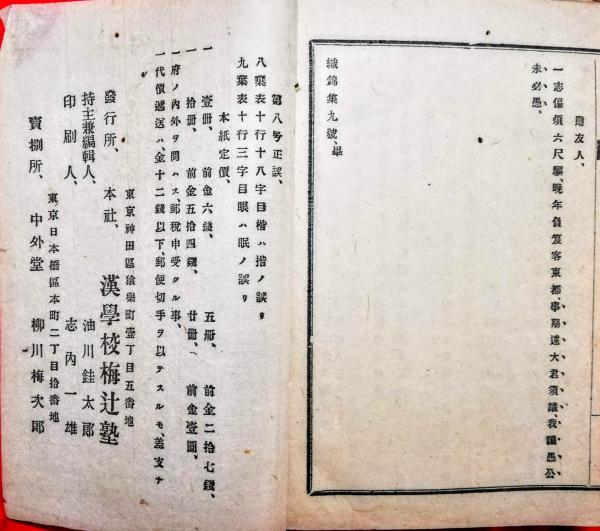 贈友人、
一志偏須六尺軀、晚年負笈客東都、事期達大君須識、我謂愚公
未必愚、
織錦集九號、畢
第八号正誤、
八葉表十行十八字目楷ハ揩ノ誤リ
九葉表十行三字目眼ハ眠ノ誤リ
本紙定價、
一 壹册、 前金六錢、 五册、 前金二拾七錢、
一 拾册、 前金五拾四錢、 廿册、 前金壹圓、
一府ノ內外ヲ問ハス、郵稅申受クル事、
一代價遞送ハ、金十二錢以下、郵便切手ヲ以テスルモ、差支ナ
東京神田區猿樂町壹丁目五番地
發行所、 本社、 漢學校梅辻塾
持主兼編輯人、 油川錓太郎
印刷人、 志內一雄
東京日本橋區本町二丁目拾番地
賣捌所、 中外堂 柳川梅次郎